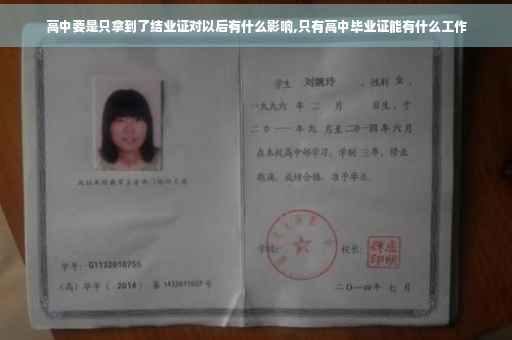 高中要是只拿到了结业证对以后有什么影响,只有高中毕业证能有什么工作
学生 刘婉玲 ,性别 女 ,
一九九六 年 二 月 日生,于
二〇一一年九 月至二〇一四年 六 月
在本校高中部学习,学制 三 年,修业
期满,成绩合格,准予毕业。
学校: 校长:
学号: G1132010755
(高)毕字( 2014 )第 1432011027 号
二〇一四年 七 月